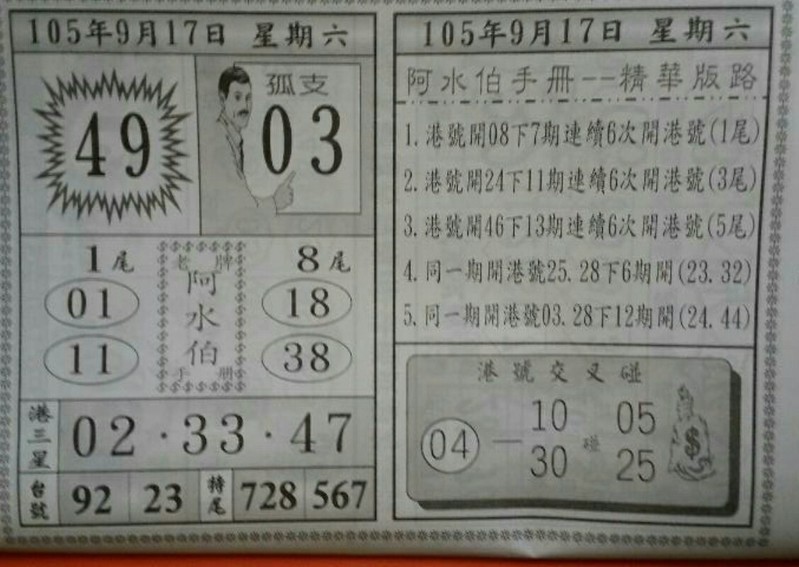 105年9月17日 星期六
49
孤支
03
1尾
01
11
老牌
阿水伯
手册
8尾
18
38
港三星
02·33·47
台號
92
23
特尾
728
567
105年9月17日 星期六
阿水伯手冊--精華版路
1. 港號開08下7期連續6次開港號(1尾)
2. 港號開24下11期連續6次開港號(3尾)
3. 港號開46下13期連續6次開港號(5尾)
4. 同一期開港號25.28下6期開(23.32)
5. 同一期開港號03.28下12期開(24.44)
港號交叉碰
04 — 10 30 碰 05 25
$